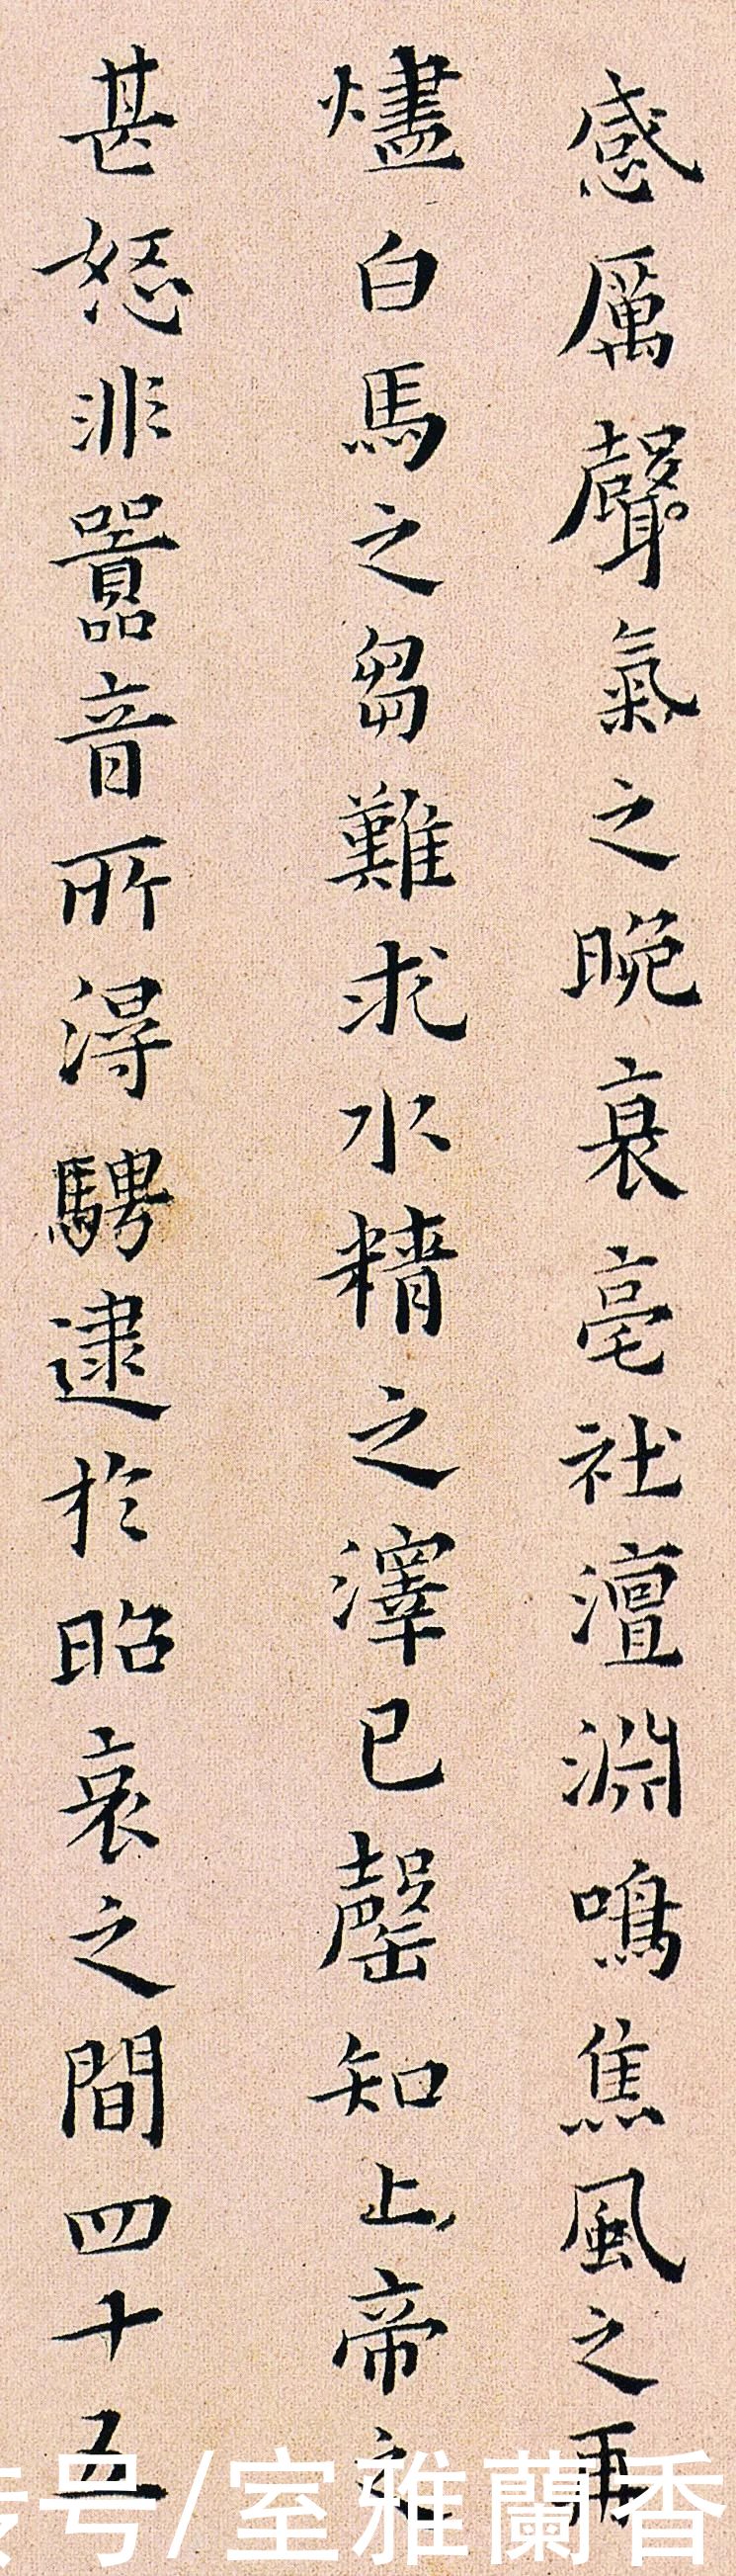 感厲聲氣之晚衰亳社澶淵鳴焦風之再
燼白馬之芻難求水精之澤已罄知上帝之
甚怒非嚚音所得騁逮於昭哀之間四十五
号/室雅蘭香